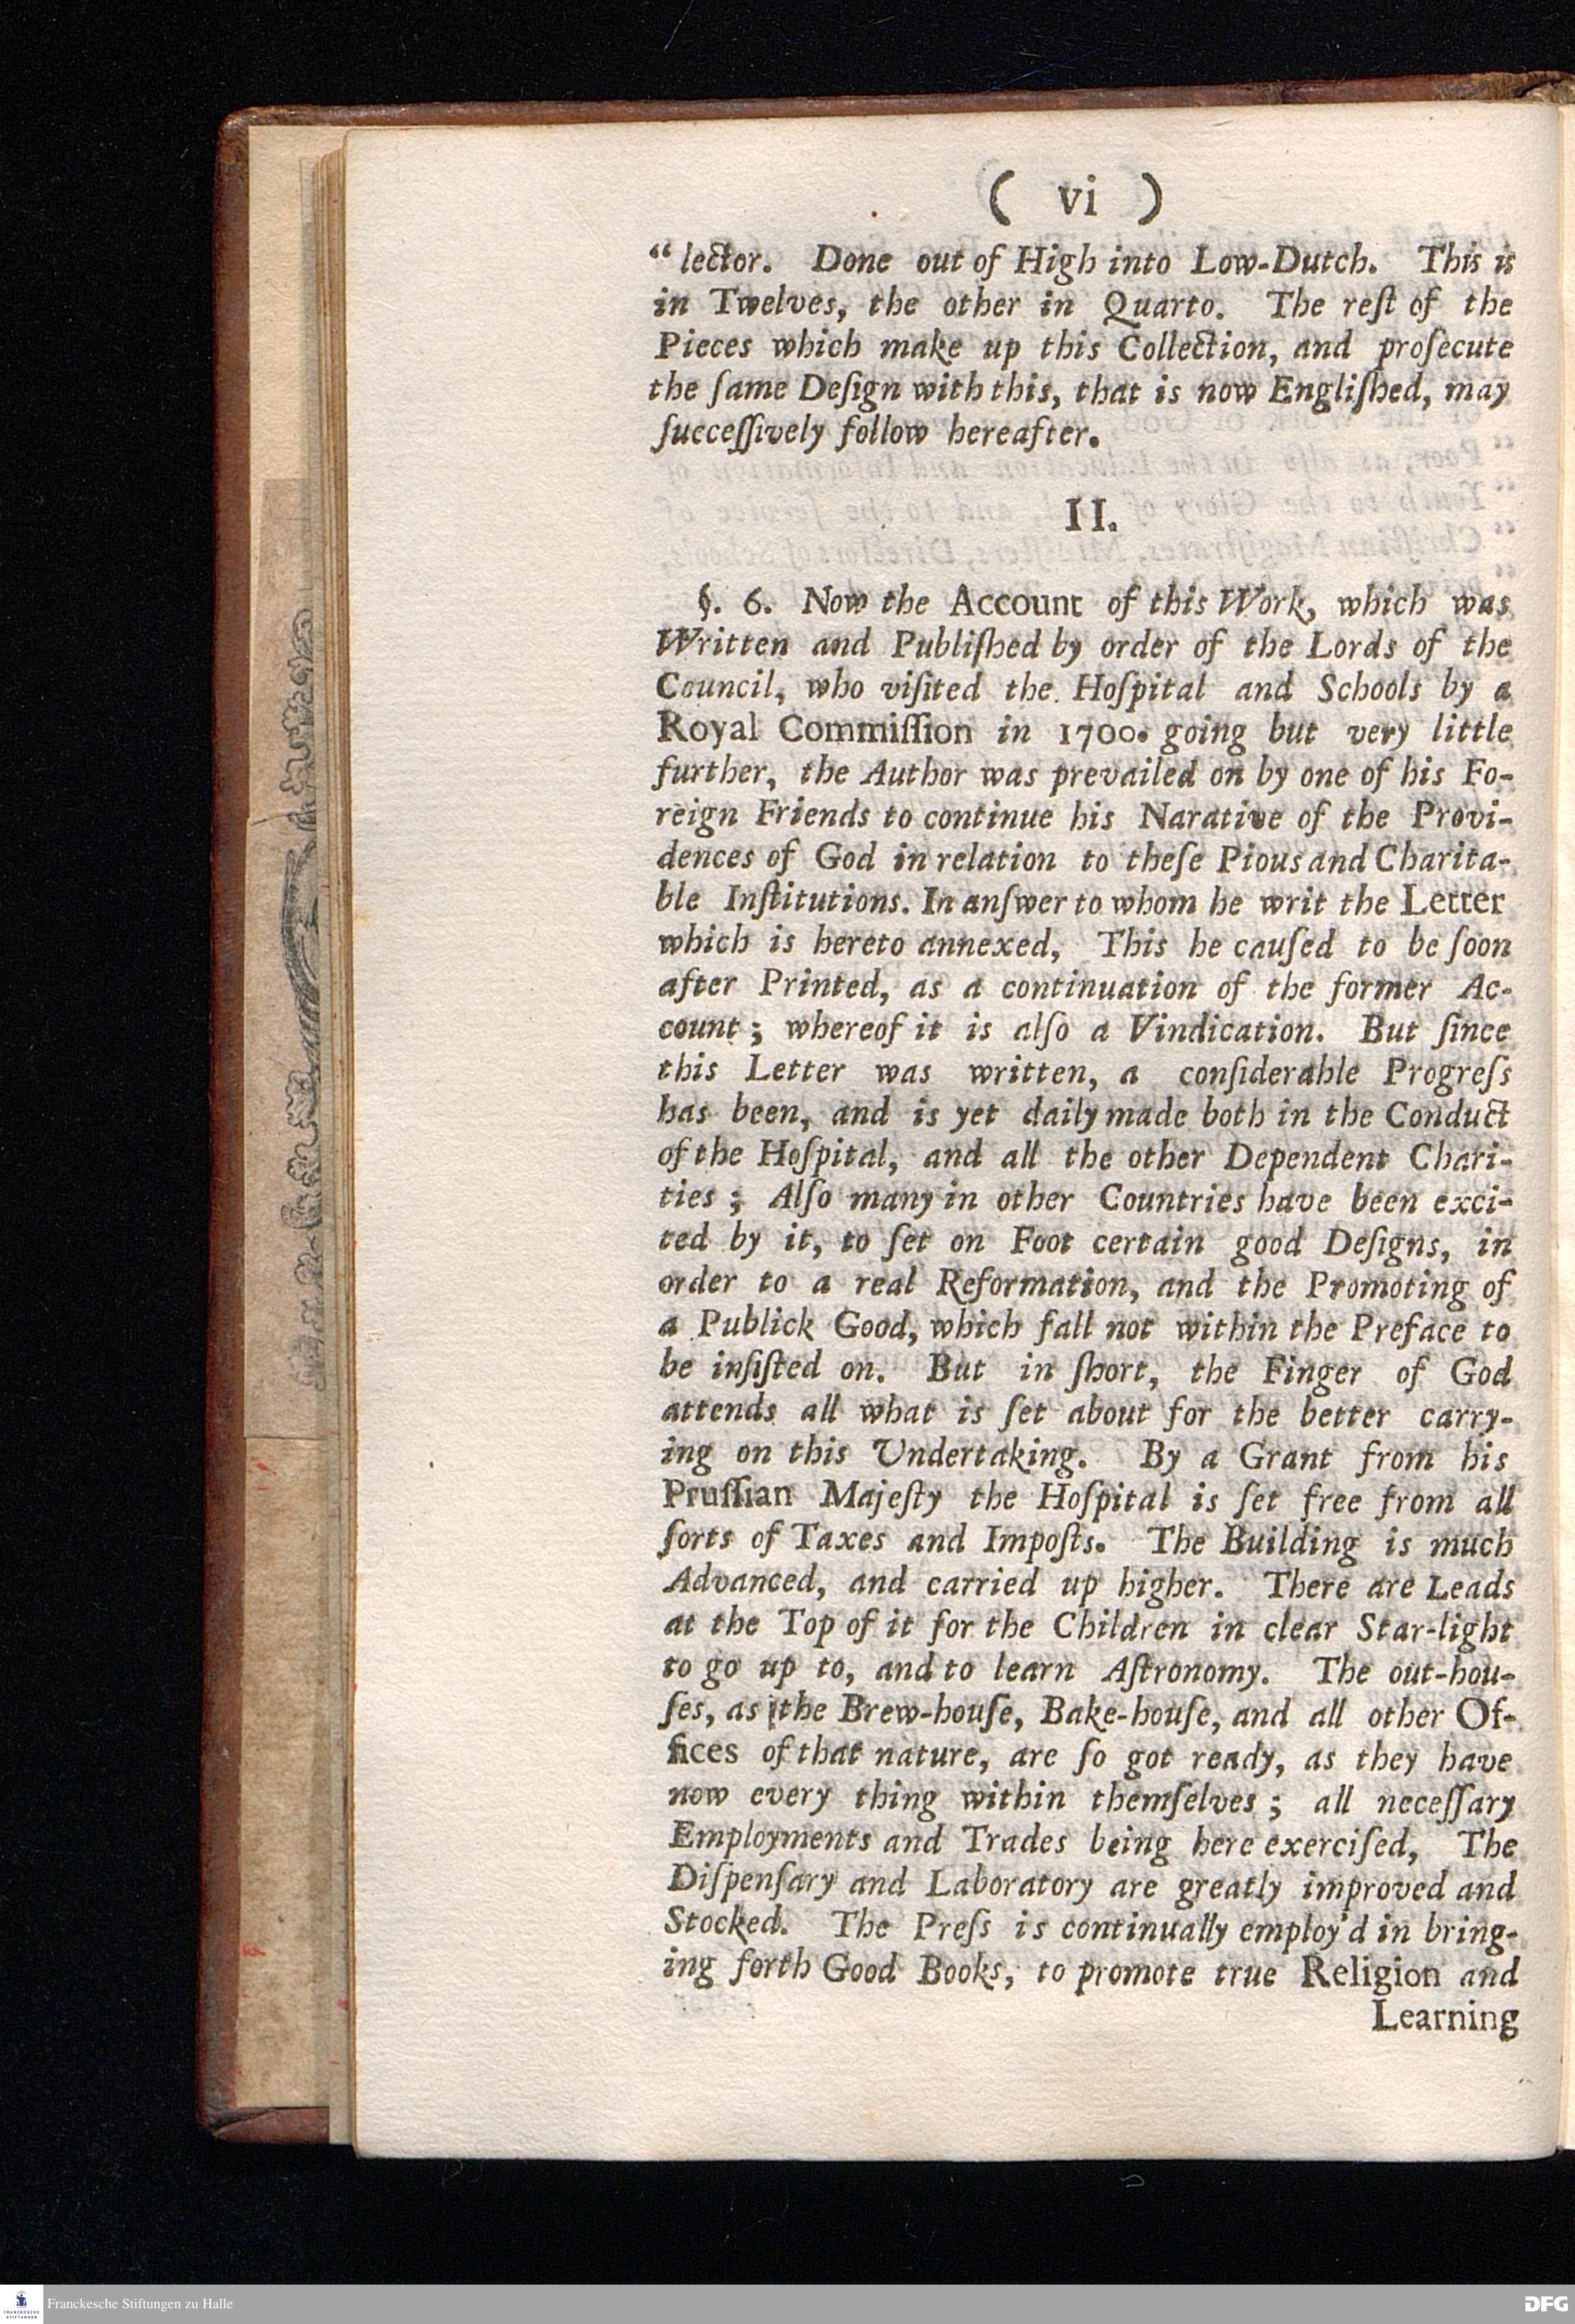 ( vi )
“ lector. Done out of High into Low-Dutch. This is
in Twelves, the other in Quarto. The reſt of the
Pieces which make up this Collection, and proſecute
the ſame Deſign with this, that is now Engliſhed, may
ſucceſſively follow hereafter.
II.
§. 6. Now the Account of this Work, which was
Written and Publiſhed by order of the Lords of the
Council, who viſited the Hoſpital and Schools by a
Royal Commiſſion in 1700. going but very little
further, the Author was prevailed on by one of his Fo-
reign Friends to continue his Narative of the Provi-
dences of God in relation to theſe Pious and Charita-
ble Inſtitutions. In anſwer to whom he writ the Letter
which is hereto annexed, This he cauſed to be ſoon
after Printed, as a continuation of the former Ac-
count; whereof it is alſo a Vindication. But ſince
this Letter was written, a conſiderable Progreſs
has been, and is yet daily made both in the Conduct
of the Hoſpital, and all the other Dependent Chari-
ties; Alſo many in other Countries have been exci-
ted by it, to ſet on Foot certain good Deſigns, in
order to a real Reformation, and the Promoting of
a Publick Good, which fall not within the Preface to
be inſiſted on. But in ſhort, the Finger of God
attends all what is ſet about for the better carry-
ing on this Undertaking. By a Grant from his
Pruſſian Majeſty the Hoſpital is ſet free from all
ſorts of Taxes and Impoſts. The Building is much
Advanced, and carried up higher. There are Leads
at the Top of it for the Children in clear Star-light
to go up to, and to learn Aſtronomy. The out-hou-
ſes, as the Brew-houſe, Bake-houſe, and all other Of-
fices of that nature, are ſo got ready, as they have
now every thing within themſelves; all neceſſary
Employments and Trades being here exerciſed, The
Diſpenſary and Laboratory are greatly improved and
Stocked. The Preſs is continually employ'd in bring-
ing forth Good Books, to promote true Religion and
Learning
Franckesche Stiftungen zu Halle
FRANCKESCHE
STIFTUNGEN
DFG